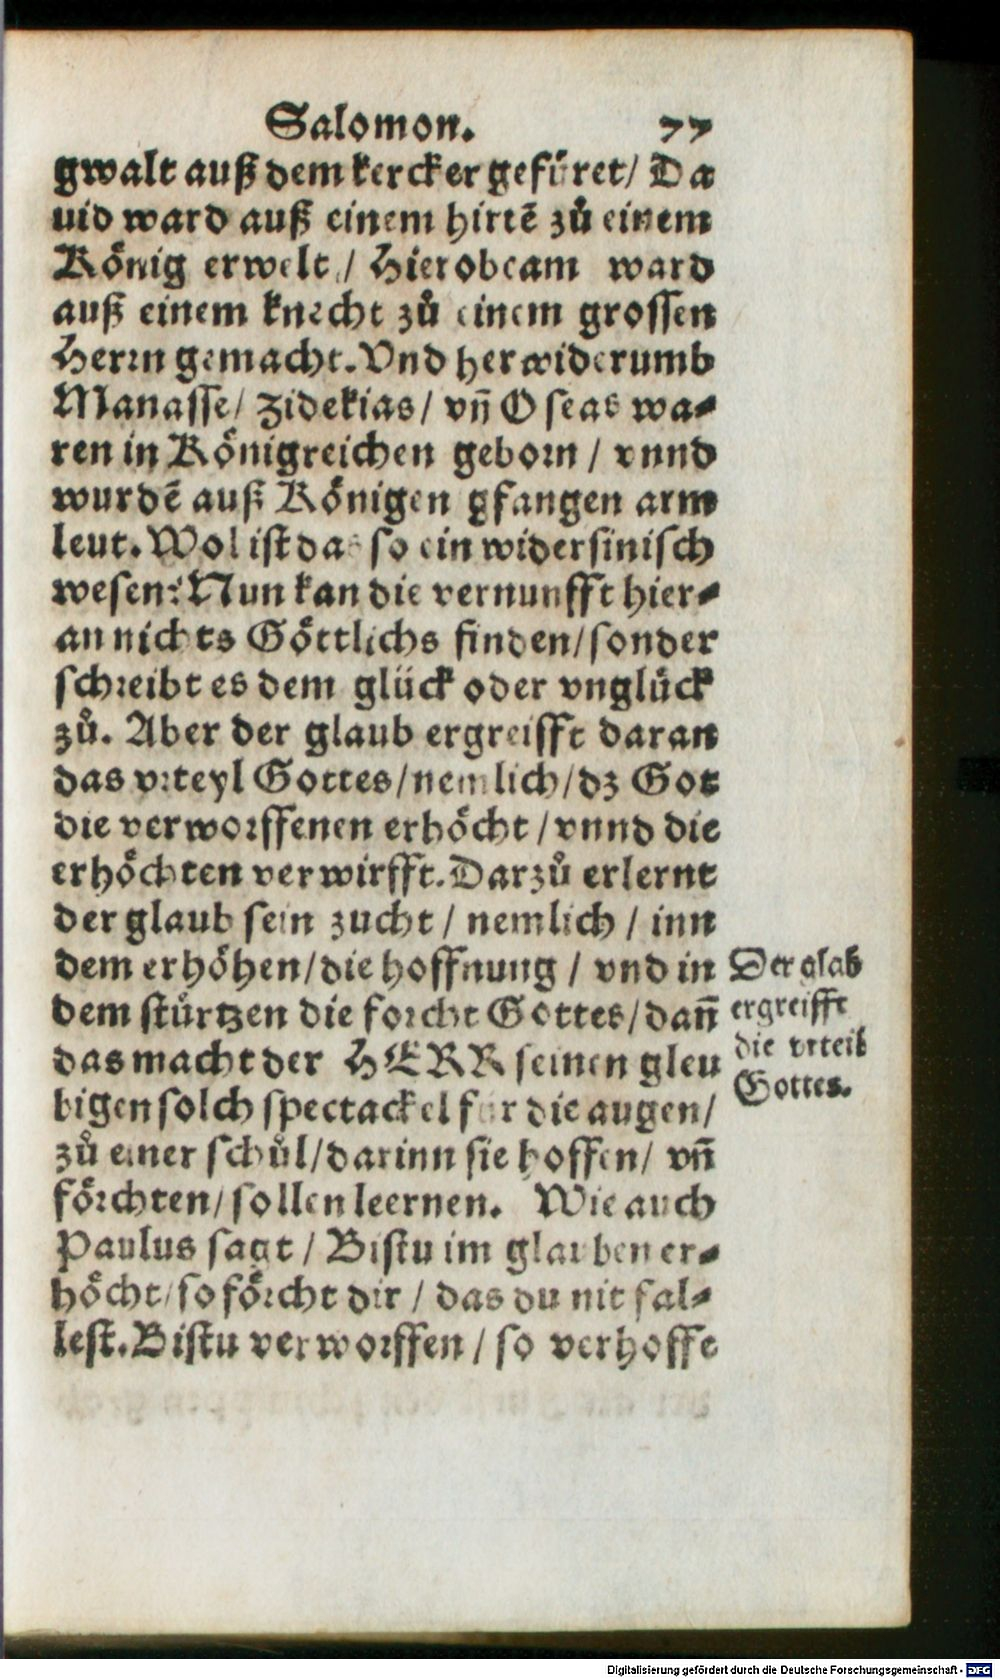 Salomon. 77
gwalt auß dem kercker gefüret/ Da
uid ward auß einem hirtẽ zů einem
König erwelt / Hierobeam ward
auß einem knecht zů einem grossen
Herrn gemacht. Vnd herwiderumb
Manasse/ Zidekias/ vñ Oseas wa-
ren in Königreichen geborn / vnnd
wurdẽ auß Königen gfangen arm
leut. Wol ist das so ein widersinisch
wesen? Nun kan die vernunfft hier-
an nichts Göttlichs finden/ sonder
schreibt es dem glück oder vnglück
zů. Aber der glaub ergreifft daran
das vrteyl Gottes/ nemlich/ dz Got
die verworffenen erhöcht / vnnd die
erhöchten verwirfft. Darzů erlernt
der glaub sein zucht / nemlich / inn
dem erhöhen/ die hoffnung / vnd in
dem stürtzen die forcht Gottes/ dañ
das macht der HERR seinen gleu
bigen solch spectackel für die augen/
zů einer schůl/ darinn sie hoffen/ vñ
förchten/ sollen leernen. Wie auch
Paulus sagt / Bistu im glauben er-
höcht/ so förcht dir / das du nit fal-
lest. Bistu verworffen / so verhoffe
Der glab
ergreifft
die vrteil
Gottes.
Digitalisierung gefördert durch die Deutsche Forschungsgemeinschaft - DFG